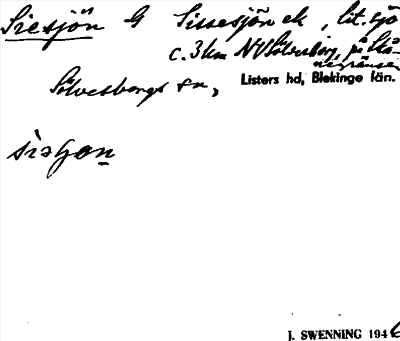 Siesjön G Sissesjön ek, lit. sjö
c. 3 km NV Sölvesborg, på Skå-
negränsen
Sölvesborgs sn,
Listers hd, Blekinge län.
J. SWENNING 1946